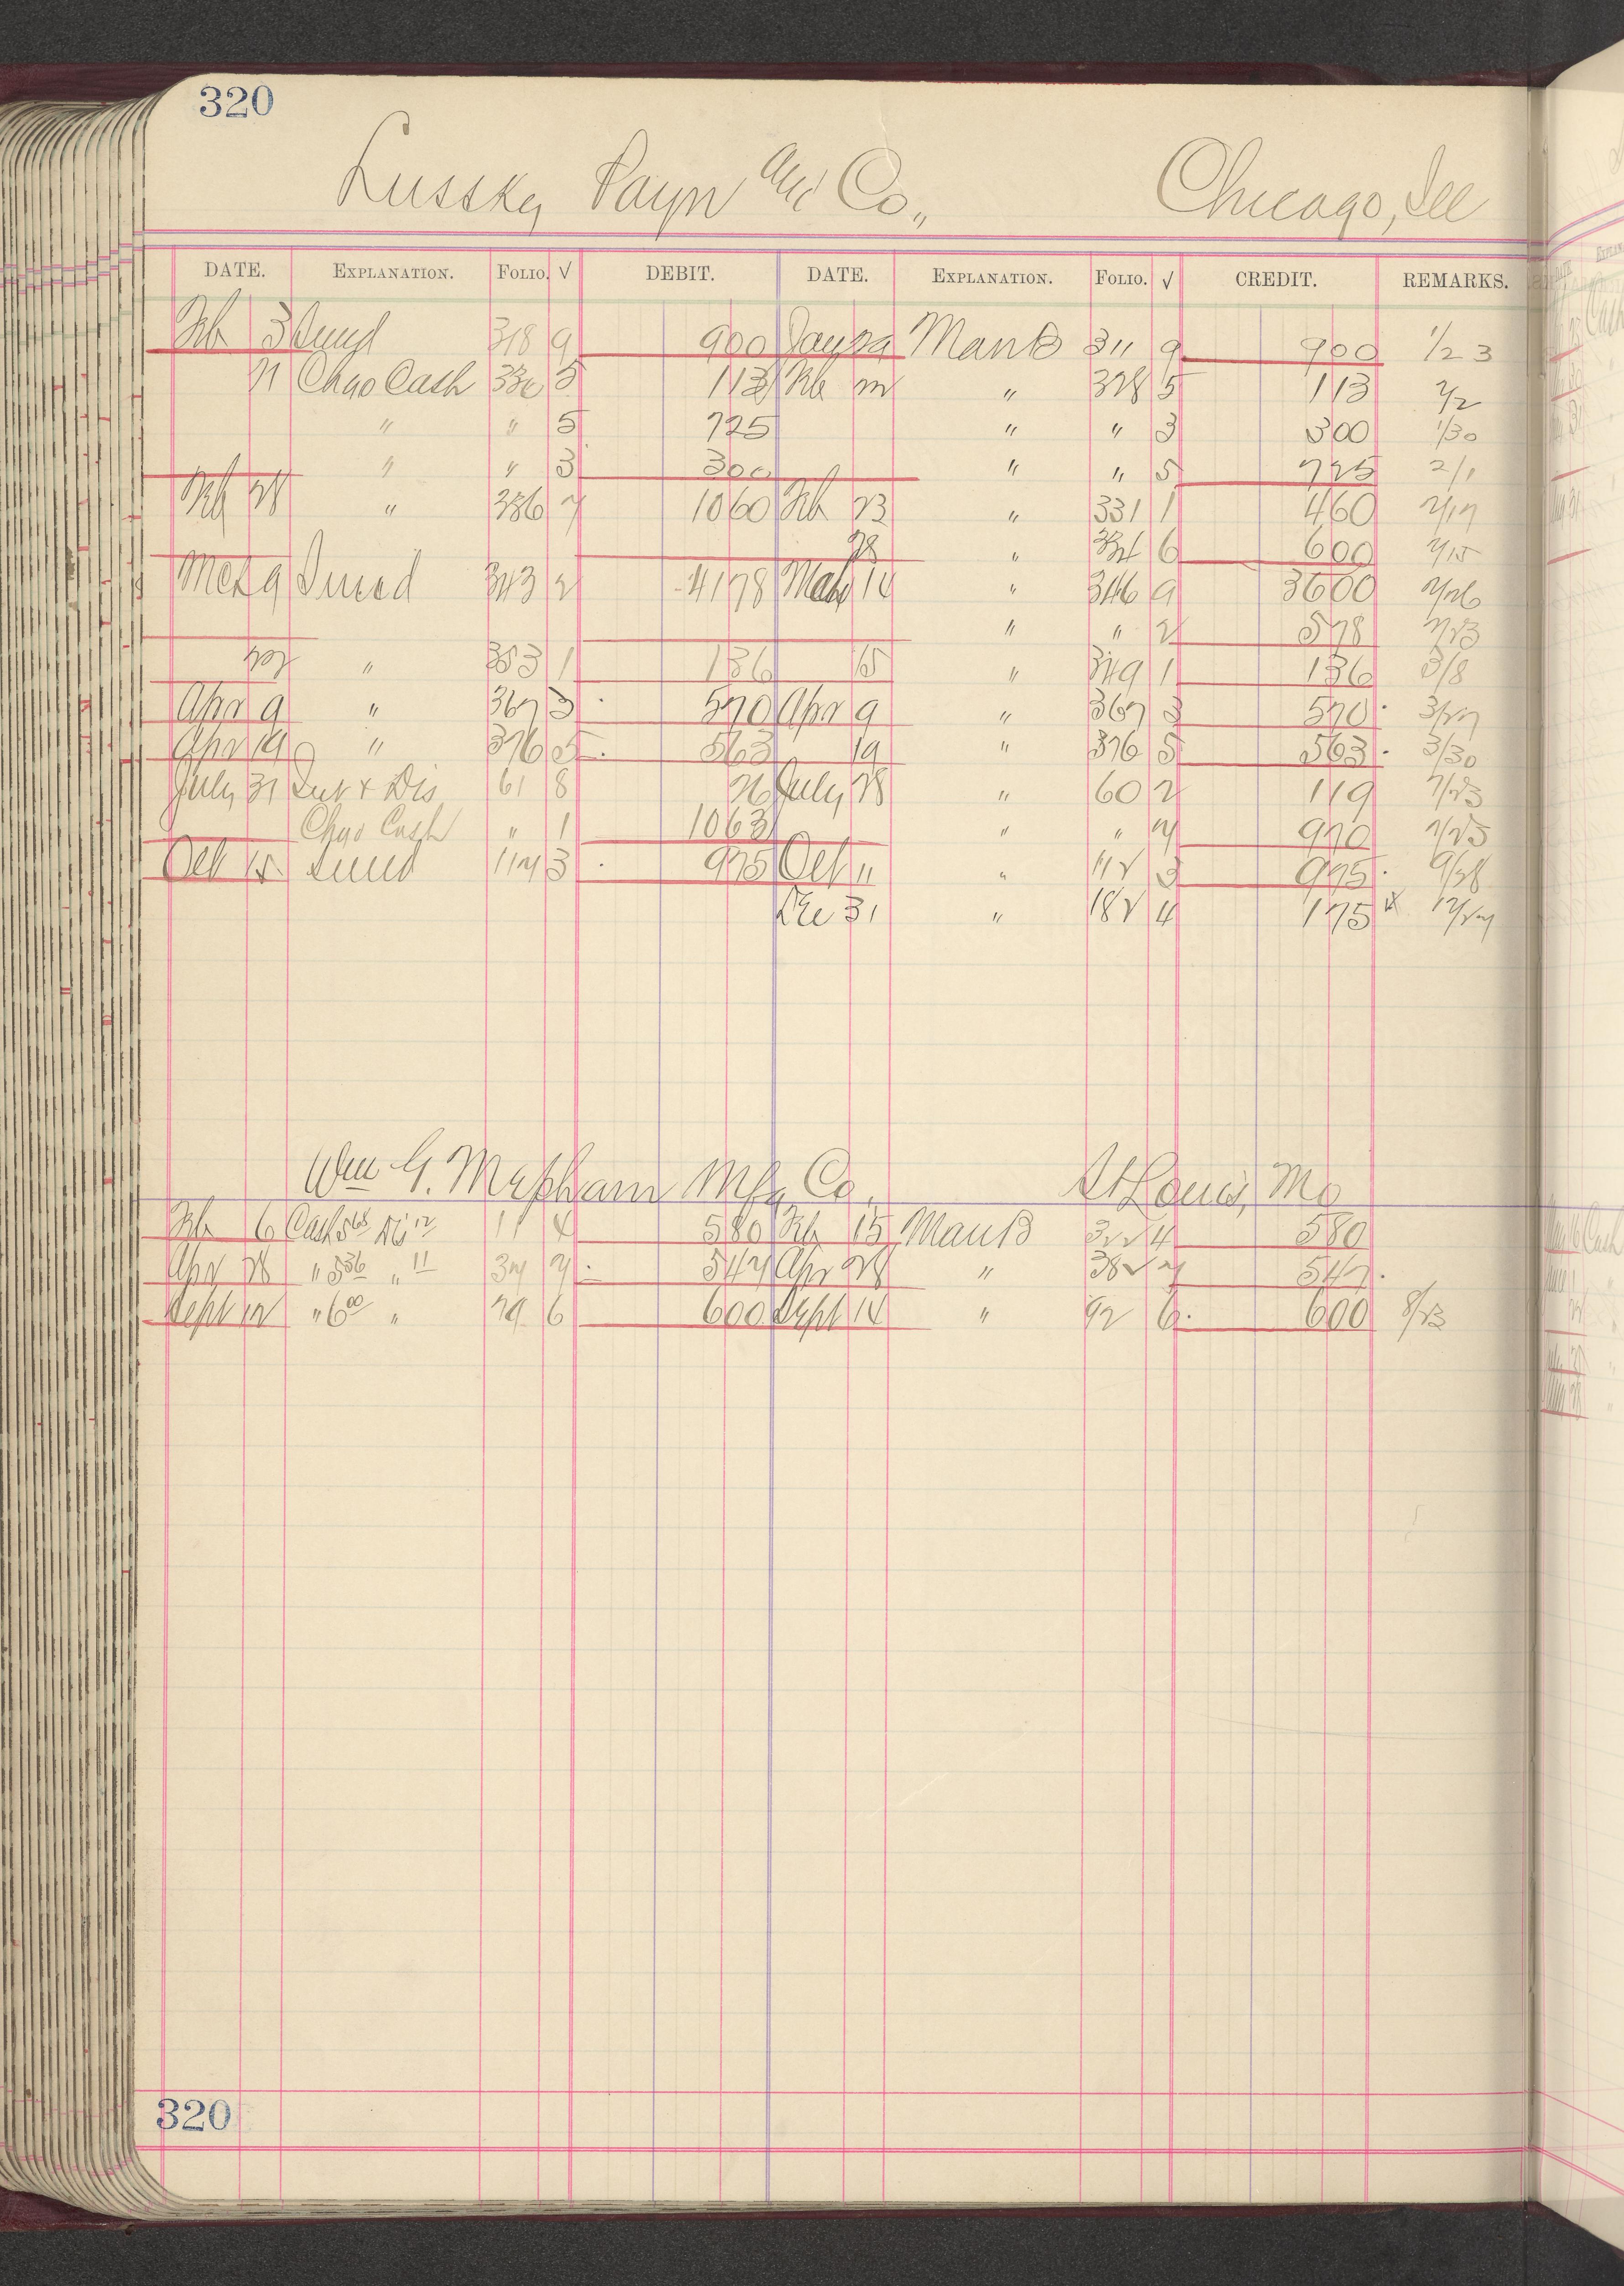 320
Lussky Payn and Co., Chicago, Ill
DATE. EXPLANATION. FOLIO. √ DEBIT. DATE. EXPLANATION. FOLIO. √ CREDIT. REMARKS.
Feb 3 Sund 318 9 900 Jany 29 ManB 311 9 900 1/23
21 Chgo Cash 330 5 113 Feb 328 5 113 2/2
" " 5 725 " " 3 300 1/30
" " 3 300 " " 5 725 2/1
Feb 28 " 336 7 1060 Feb 23 " 331 1 460 2/17
28 " 334 6 600 2/15
Mch 9 Sund 343 2 4178 Mch 14 " 346 9 3600 2/26
" " 2 578 2/23
" 353 1 136 15 " 349 1 136 3/8
Apr 9 " 367 3 570 Apr 9 " 367 3 570 3/27
Apr 19 " 376 5 563 19 " 376 5 563 3/30
July 31 Int & Dis 61 8 26 July 28 " 60 2 119 7/23
Chgo Cash " 1 1063 " " 7 970 7/25
Oct 15 Sund 117 3 975 Oct 11 " 112 3 975 9/28
Dec 31 " 182 4 175 x 12/27
Wm G. Mepham Mfg Co. St Louis, Mo
Feb 6 Cash 568 Di 12 11 4 580 Feb 15 ManB 322 4 580
Apr 28 " 536 " 11 37 7 547 Apr 28 " 382 7 547
Sept 12 " 600 " 79 6 600 Sept 14 " 92 6 600 8/23
320